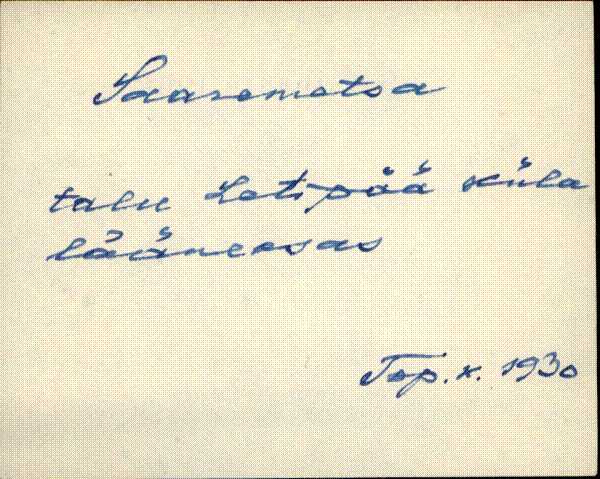 Saaremetsa
talu Letipää küla
lääneosas
Top. k. 1930